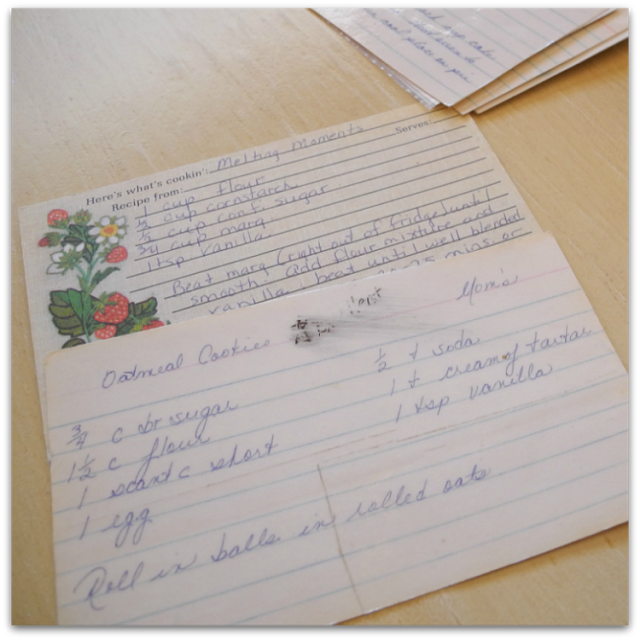 Here's what's cookin': Melting Moments Serves:
Recipe from:
1 cup flour
½ cup cornstarch
½ cup conf. sugar
¾ cup marg
1 tsp vanilla
Beat marg (right out of fridge) until
smooth. add flour mixture and
vanilla. beat until well blended
mins or
Oatmeal Cookies
Mom's
¾ c br sugar
1½ c flour
1 scant c short
1 egg
½ t soda
1 t cream of tartar
1 tsp vanilla
Roll in balls in rolled oats